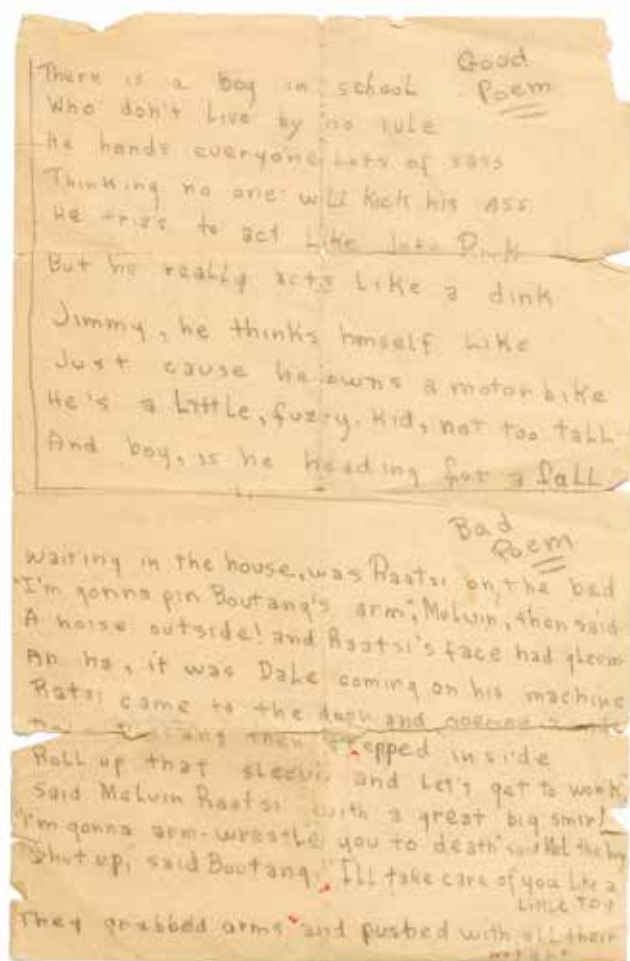 Good
Poem
There is a boy in school
Who don't Live by no rule
He hands everyone Lots of sass
Thinking no one will kick his ASS
He tries to act Like
But he really acts Like a dink
Jimmy, he thinks himself Like
Just cause he owns a motor bike
He's a Little, fuzzy, kid, not too tall
And boy, is he heading for a fall
Bad
Poem
Waiting in the house, was Raatsi on, the bed
"I'm gonna pin Boutang's arm", Melvin, then said
A noise outside! and Raatsi's face had gleem
Ah ha, it was Dale coming on his machine
Ratsi came to the door and opened it
then stepped inside
Roll up that sleeve and Let's get to work,"
Said Melvin Raatsi with a great big smirk
"I'm gonna arm-wrestle you to death" said Mel the boy
"Shut up, said Boutang," I'll take care of you Like a
Little Toy
They grabbed arms and pushed with all their
might